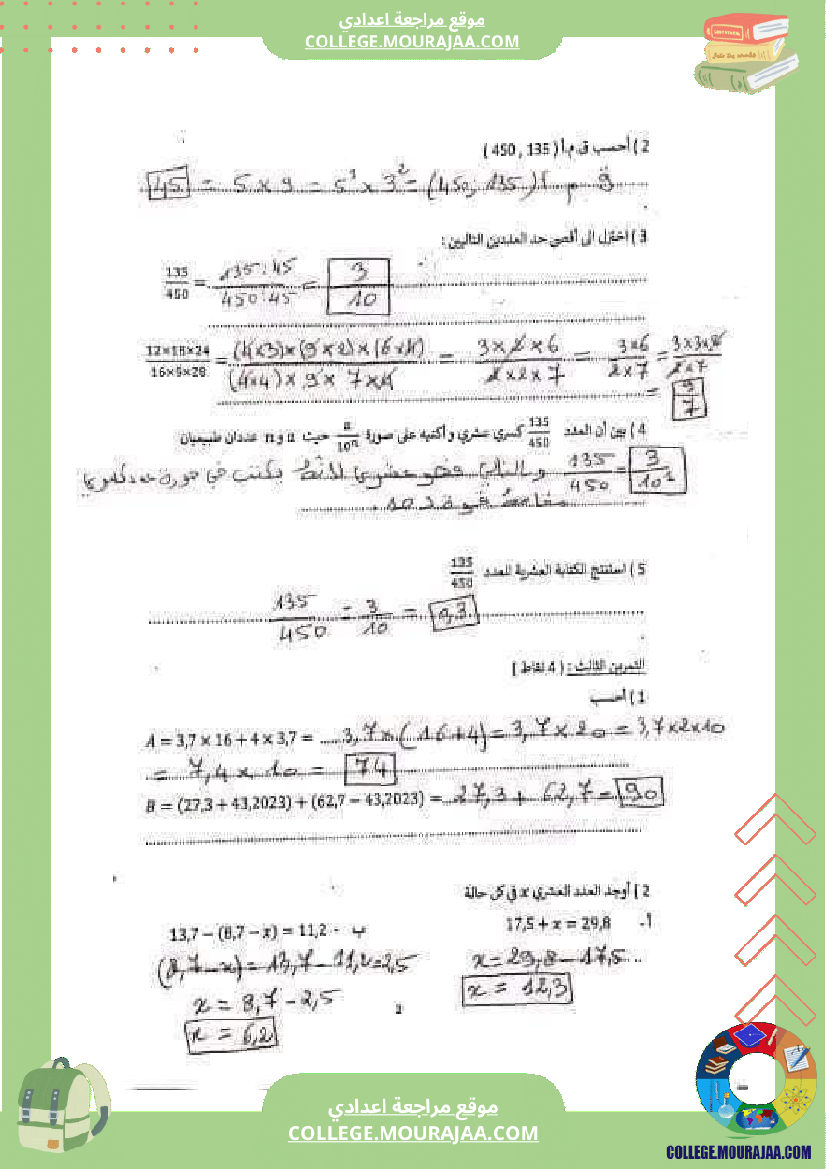 موقع مراجعة اعدادي
COLLEGE.MOURAJAA.COM
2 ) أحسب ق.م.أ ( 135 , 450 )
ق م أ ( 135 ; 450 ) = 5¹ × 3² = 5 × 9 = 45
3 ) اختزل الى أقصى حد العددين التاليين :
135/450 = 135:45/450:45 = 3/10
12×18×24/16×9×28 = (4×3)×(9×2)×(6×4)/(4×4)×9×7×4 = 3×2×6/2×2×7 = 3×6/2×7 = 3×3×2/2×7
= 9/7
4 ) بين أن العدد 135/450 كسري عشري و أكتبه على صورة a/10ⁿ حيث a و n عددان طبيعيان
135/450 = 3/10¹ و بالتالي فهو عشري لأنه يكتب في صورة عدد كسري
مقامه قوة لـ 10 .
5 ) استنتج الكتابة العشرية للعدد 135/450
135/450 = 3/10 = 0,3
التمرين الثالث : ( 4 نقاط )
1 ) أحسب
A = 3,7 × 16 + 4 × 3,7 = 3,7 × ( 16+4 ) = 3,7 × 20 = 3,7×2×10
= 7,4 × 10 = 74
B = (27,3 + 43,2023) + (62,7 − 43,2023) = 27,3 + 62,7 = 90
2 ) أوجد العدد العشري x في كل حالة
أ- 17,5 + x = 29,8
x = 29,8 − 17,5
x = 12,3
ب - 13,7 − (8,7 − x) = 11,2
(8,7 − x) = 13,7 − 11,2 = 2,5
x = 8,7 − 2,5
x = 6,2
2
موقع مراجعة اعدادي
COLLEGE.MOURAJAA.COM
COLLEGE.MOURAJAA.COM